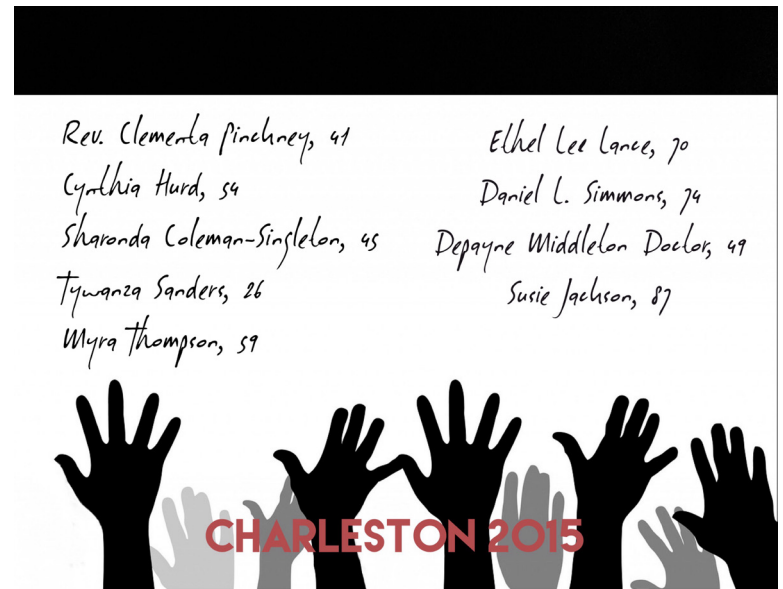 Rev. Clementa Pinckney, 41
Cynthia Hurd, 54
Sharonda Coleman-Singleton, 45
Tywanza Sanders, 26
Myra Thompson, 59
Ethel Lee Lance, 70
Daniel L. Simmons, 74
Depayne Middleton Doctor, 49
Susie Jackson, 87
CHARLESTON 2015